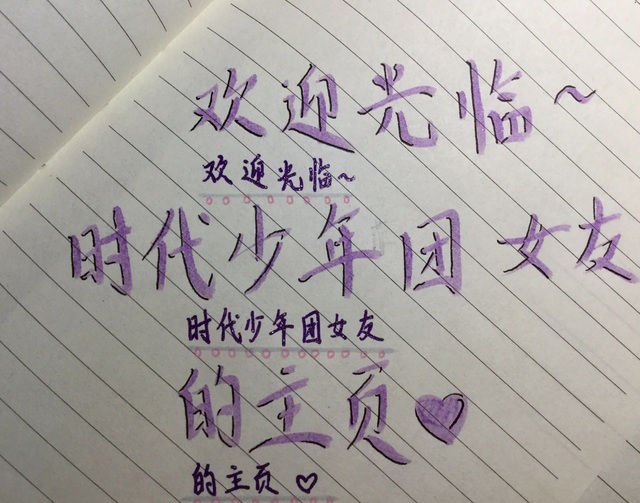 欢迎光临~
欢迎光临~
时代少年团 女友
时代少年团女友
的主页♥
的主页♡